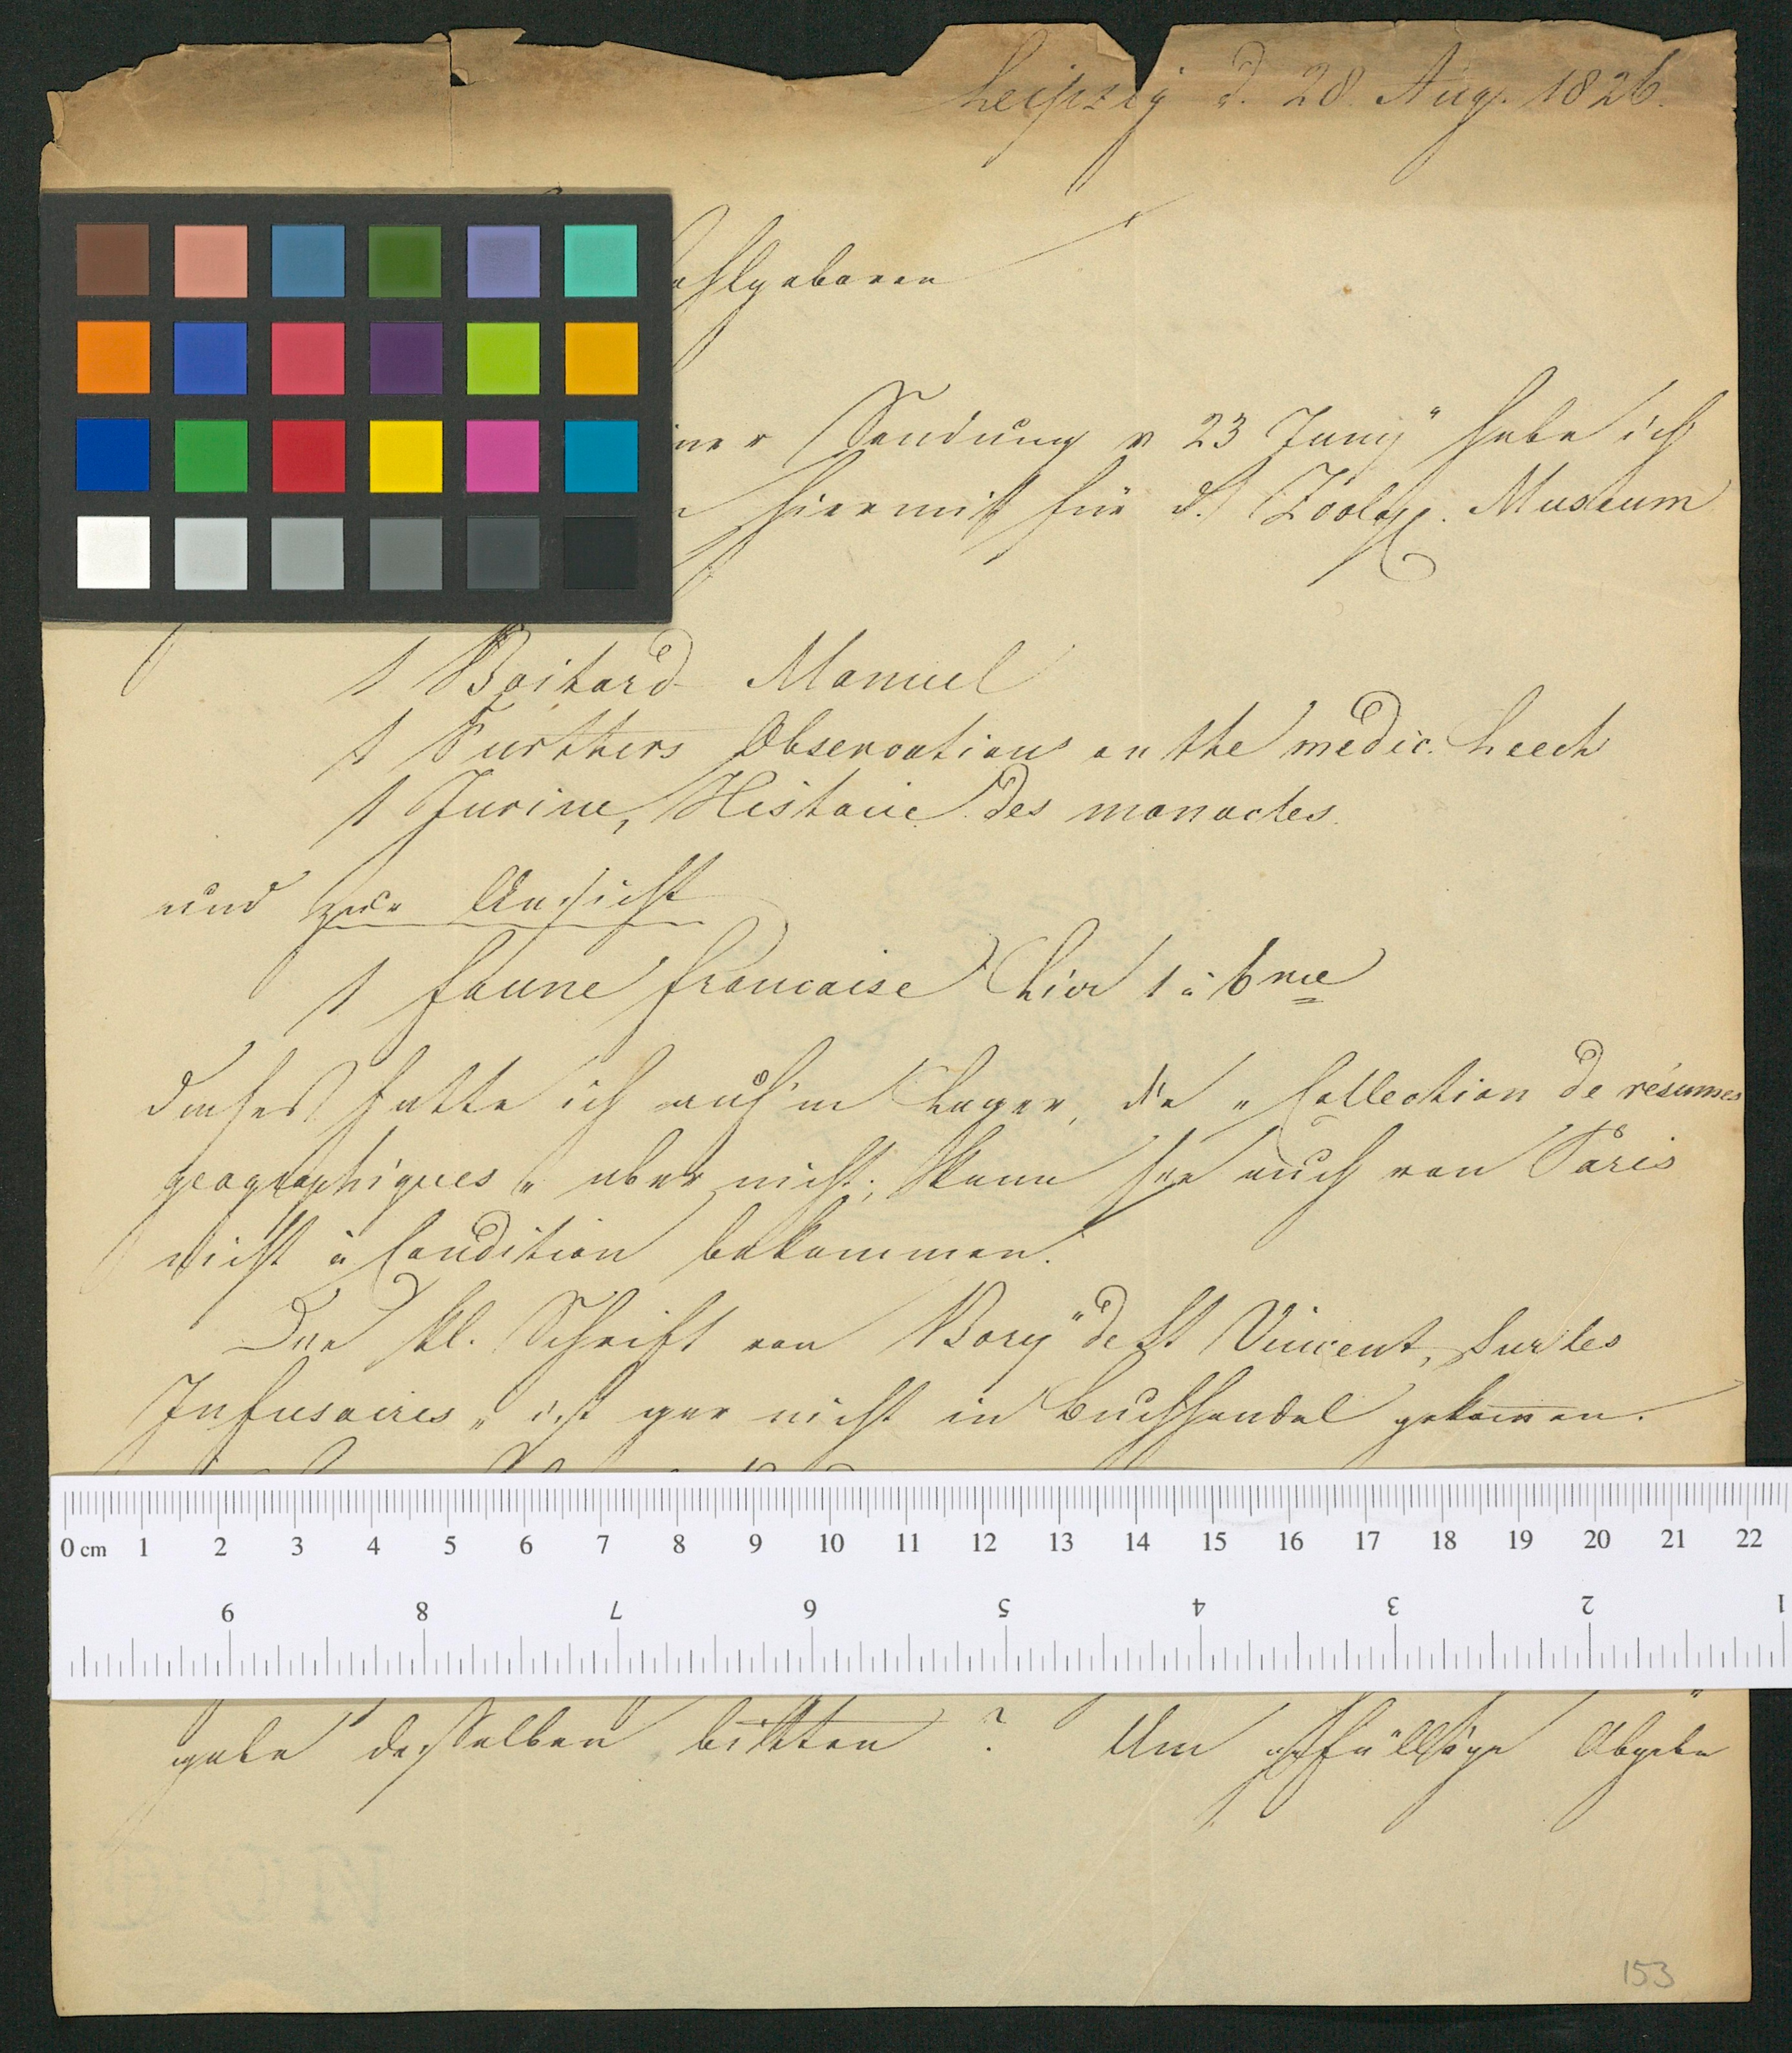 Leipzig d. 28. Aug. 1826.
ohlgeboren
iner Sendung v 23 Juny habe ich
hiermit für d. Zoolog. Museum
1 Boitard Manuel
1 Furthers Observations on the medic. Leech
1 Jurine, Histoire des monocles.
und zur Ansicht
1 faune francaise Livr 1 à 6
hatte ich auf'm Lager, die „Collection de résumes
geographiques„ aber nicht; kann sie auch von Paris
nicht à Condition bekommen.
Die kl. Schrift von Bory de St Vincent, Sur les
Infusoires„ ist gar nicht in Buchhandel gekom̅en.
0 cm 1 2 3 4 5 6 7 8 9 10 11 12 13 14 15 16 17 18 19 20 21 22
9 8 7 6 5 4 3 2 1
gabe desselben bitten? Um gefällige Abgabe
153